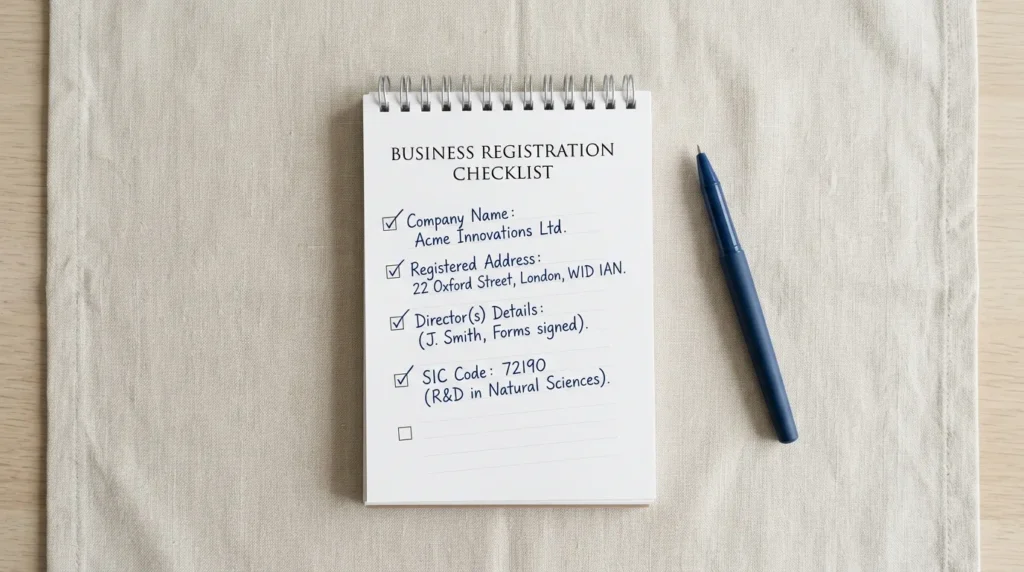 BUSINESS REGISTRATION
CHECKLIST
Company Name:
Acme Innovations Ltd.
Registered Address:
22 Oxford Street, London, W1D 1AN.
Director(s) Details:
(J. Smith, Forms signed).
SIC Code: 72190
(R&D in Natural Sciences).